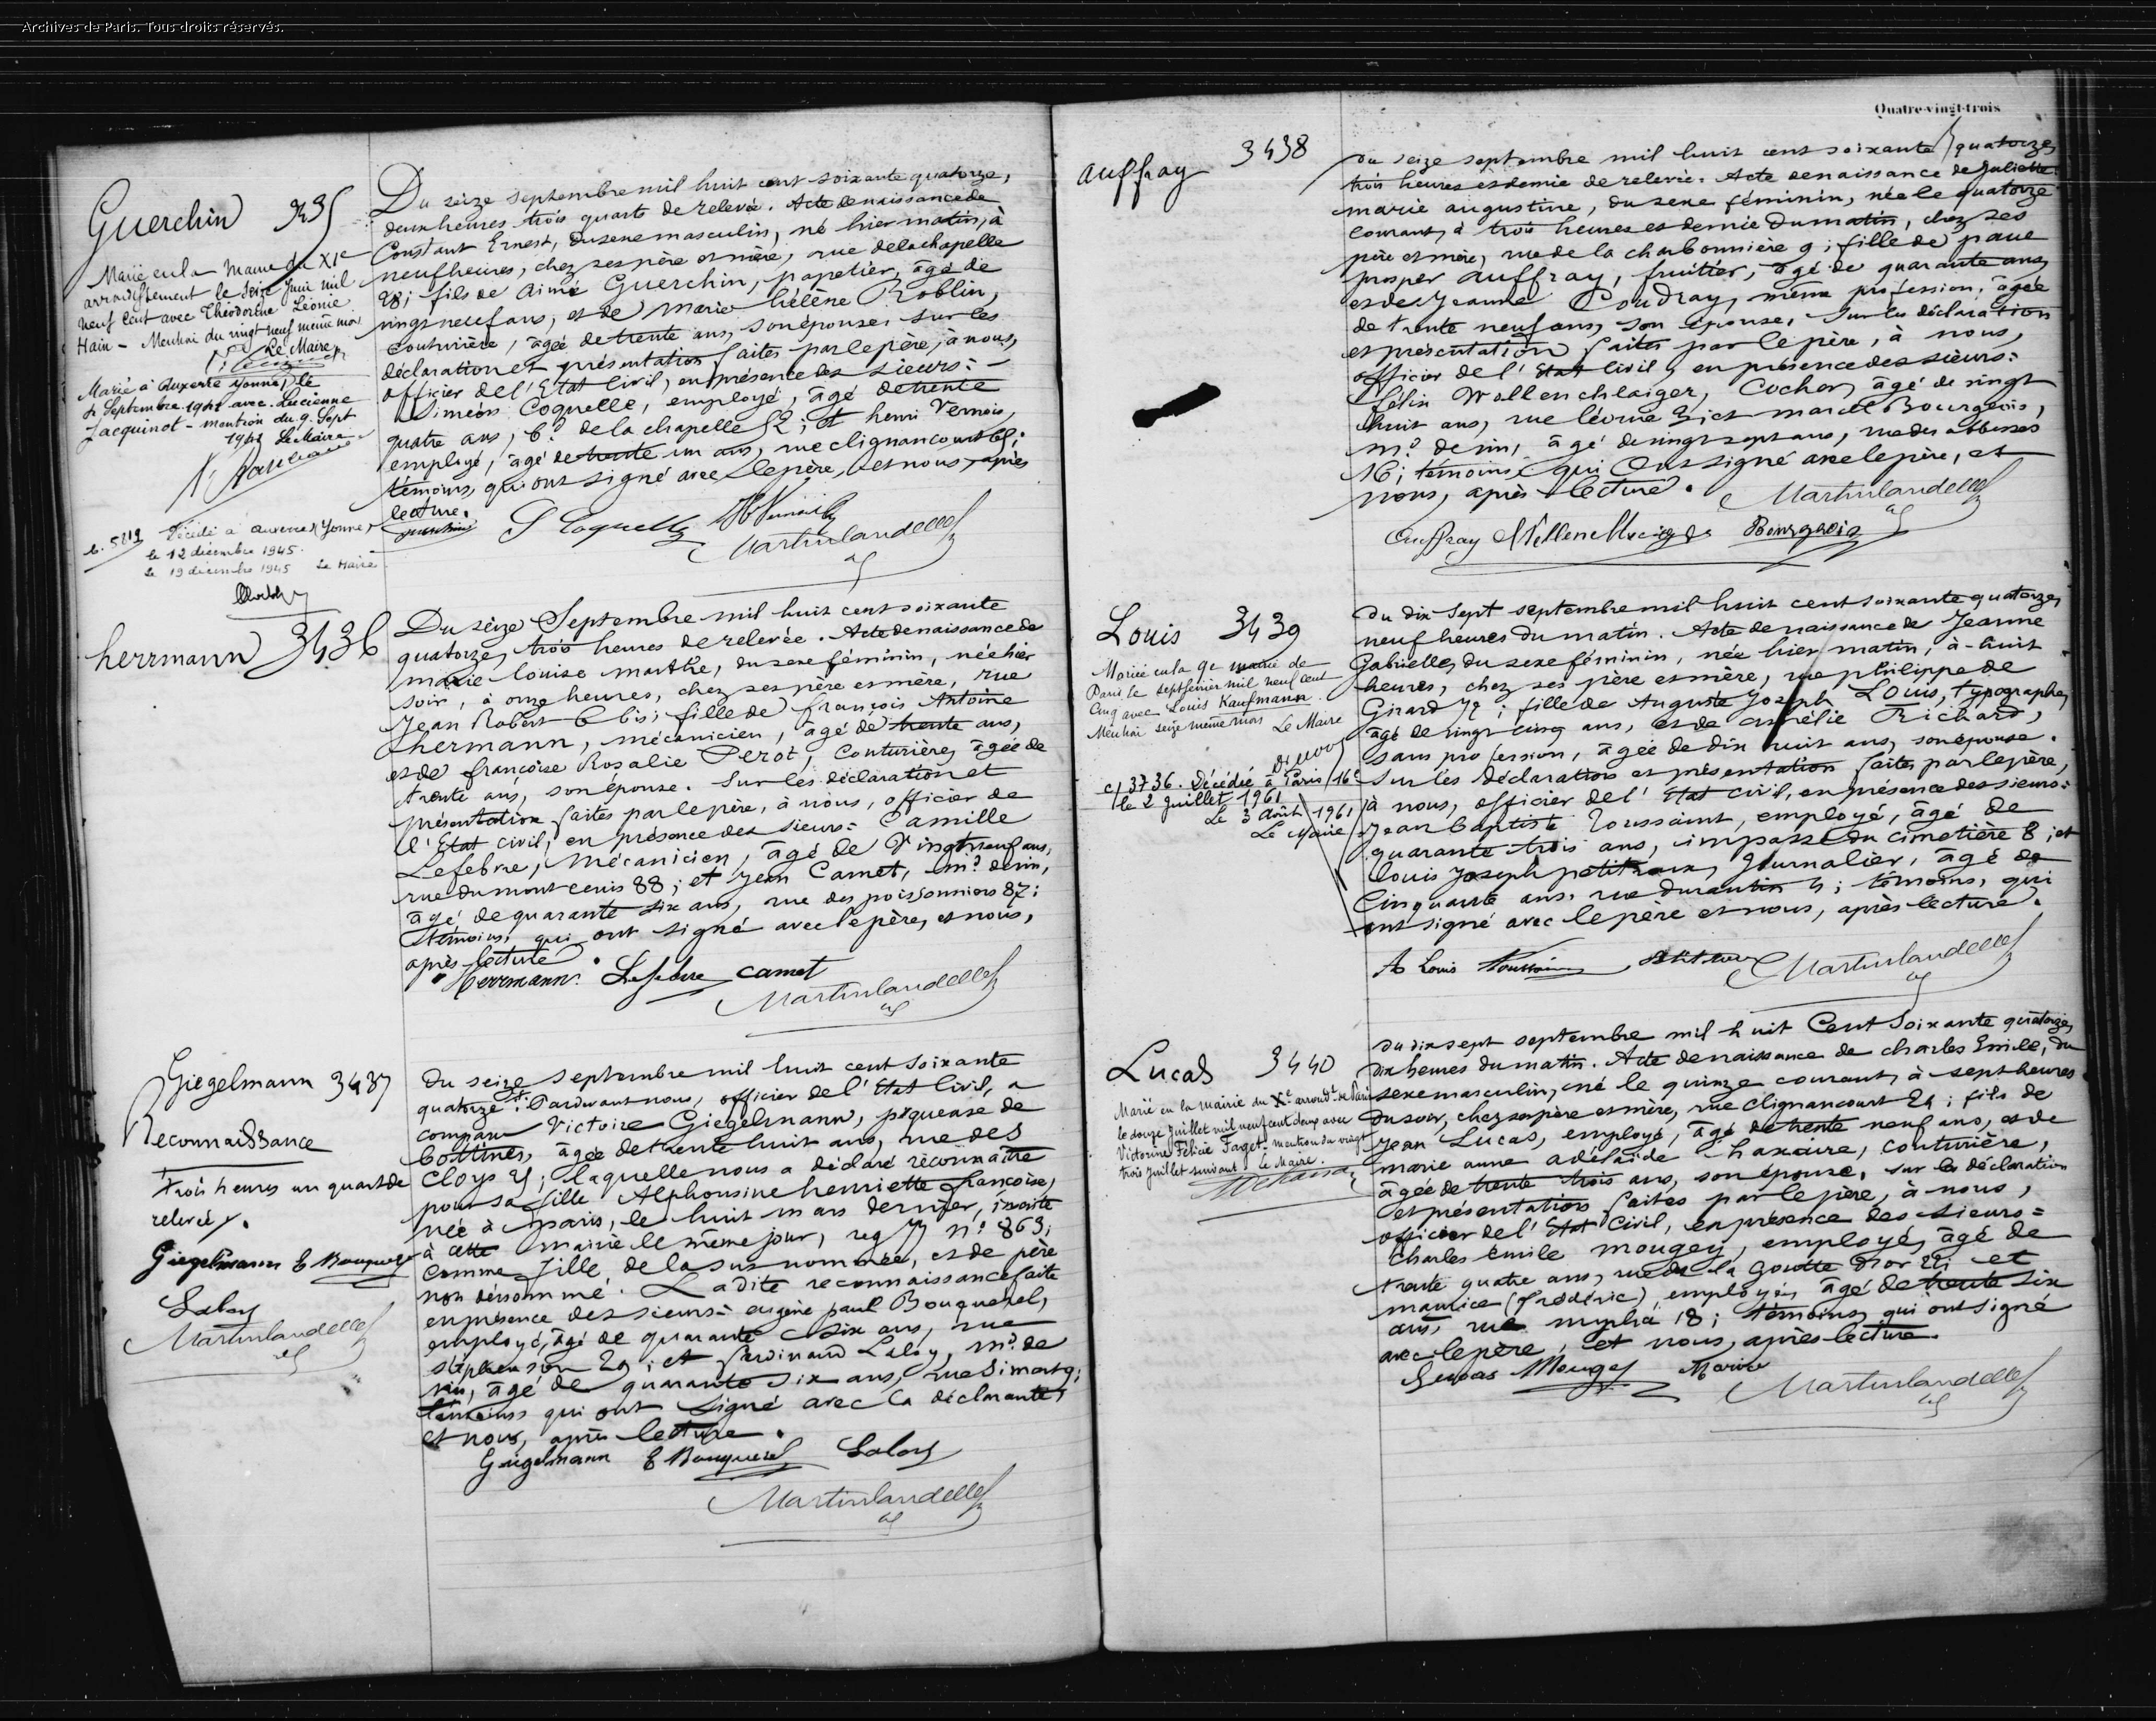 Archives de Paris. Tous droits réservés.
Guerchin
Marié en la Mairie du XIe
arrondissement le seize Juin mil
neuf cent avec Théodorine Léonie
Hain - Mention du vingt neuf même mois
Le Maire
Marié à Auxerre Yonne, le
Septembre 1941 avec Lucienne
Jacquinot - mention du 9. Sept
1941 Le Maire
Décédé à Auxerre (Yonne)
le 12 décembre 1945.
Le 19 décembre 1945 Le Maire
Du seize septembre mil huit cent soixante quatorze,
deux heures trois quarts de relevée. Acte de naissance de
Constant Ernest, du sexe masculin, né hier matin, à
neuf heures, chez ses père et mère, rue de la chapelle
28; fils de Aimé Guerchin, papetier, âgé de
vingt neuf ans, et de Marie hélène Roblin,
couturière, âgée de trente ans, son épouse, sur les
déclaration et présentation faites par le père, à nous,
officier de l'Etat Civil, en présence des sieurs:
Siméon Coquelle, employé, âgé de trente
quatre ans, Bd de la chapelle 52; et henri Vernois,
employé, âgé de trente un ans, rue clignancourt
témoins, qui ont signé avec le père, et nous, après
lecture.
S Coquelle
Martinlandelle
herrmann 3436
Du seize Septembre mil huit cent soixante
quatorze, trois heures de relevée. Acte de naissance de
marie louise marthe, du sexe féminin, née hier
soir, à onze heures, chez ses père et mère, rue
Jean Robert 6 bis; fille de françois Antoine
hermann, mécanicien, âgé de trente ans,
et de françoise Rosalie Perot, couturière, âgée de
trente ans, son épouse. Sur les déclaration et
présentation faites par le père, à nous, officier de
l'Etat civil, en présence des sieurs: Camille
Lefebre, mécanicien, âgé de Vingt neuf ans,
rue du mont cenis 88; et Jean Camet, md de vin,
âgé de quarante six ans, rue des poissonniers 87;
témoins, qui ont signé avec le père, et nous,
après lecture.
Herrmann. Lefebre camet
Martinlandelle
Giegelmann 3437
Reconnaissance
trois heures un quart de
relevée.
Giegelmann E Bouquerel
Laloy
Martinlandelle
Du seize septembre mil huit cent soixante
quatorze. Pardevant nous, officier de l'Etat Civil, a
comparu Victoire Giegelmann, piqueuse de
bottines, âgée de trente huit ans, rue des
Cloys; laquelle nous a déclaré reconnaître
pour sa fille Alphonsine henriette françoise,
née à paris, le huit mars dernier, inscrite
à cette mairie le même jour, reg n° 863,
comme fille de la sus nommée, et de père
non dénommé. Ladite reconnaissance faite
en présence des sieurs: eugène paul Bouquerel,
employé, âgé de quarante six ans, rue
stéphenson 29; et ferdinand Laloy, md de
vin, âgé de quarante six ans, rue Simart 9;
témoins qui ont signé avec la déclarante,
et nous, après lecture.
Giegelmann E Bouquerel Laloy
Martinlandelle
Quatre-vingt-trois
auffray 3438
Du seize septembre mil huit cent soixante quatorze,
trois heures et demie de relevée. Acte de naissance de Juliette
marie augustine, du sexe féminin, née le quatorze
courant, à trois heures et demie du matin, chez ses
père et mère, rue de la charbonnière 9; fille de paul
prosper auffray, fruitier, âgé de quarante ans,
et de Jeanne Coudray, même profession, âgée
de trente neuf ans, son épouse. Sur les déclaration
et présentation faites par le père, à nous,
officier de l'Etat Civil, en présence des sieurs:
félix Wollenchlaiger, Cocher, âgé de vingt
huit ans, rue léonie 3; et marcel Bourgeois,
md de vin, âgé de vingt sept ans, rue des abbesses
16; témoins qui ont signé avec le père, et
nous, après lecture. Martinlandelle
Auffray Bourgeois
Louis 3439
Mariée en la 9e mairie de
Paris le sept février mil neuf cent
cinq avec Louis Kaufmann.
Mention seize même mois Le Maire
c/3736. Décédée à Paris /16e
le 2 Juillet 1961
Le 3 Août 1961
Le Maire
Du dix sept septembre mil huit cent soixante quatorze,
neuf heures du matin. Acte de naissance de Jeanne
Gabrielle, du sexe féminin, née hier matin, à huit
heures, chez ses père et mère, rue philippe de
Girard; fille de Auguste Joseph Louis, typographe,
âgé de vingt cinq ans, et de aurélie Richard,
sans profession, âgée de dix huit ans, son épouse.
Sur les déclaration et présentation faites par le père,
à nous, officier de l'Etat civil, en présence des sieurs:
Jean baptiste Toussaint, employé, âgé de
quarante trois ans, impasse du cimetière 8; et
louis Joseph petitjean, Journalier, âgé de
cinquante ans, rue durantin 4; témoins, qui
ont signé avec le père et nous, après lecture.
A Louis Toussaint Martinlandelle
Lucas 3440
Marié en la mairie du Xe arrondt de Paris
le douze Juillet mil neuf cent deux avec
Victorine Félicie Faget - mention du vingt
trois Juillet suivant le Maire.
Du dix sept septembre mil huit Cent Soixante quatorze,
dix heures du matin. Acte de naissance de charles Emile, du
sexe masculin, né le quinze courant, à sept heures
du soir, chez ses père et mère, rue Clignancourt; fils de
Jean Lucas, employé, âgé de trente neuf ans, et de
marie anne adélaïde haxaire, couturière,
âgée de trente trois ans, son épouse, sur les déclaration
et présentation faites par le père, à nous,
officier de l'Etat Civil, en présence des sieurs:
Charles émile mougey, employé, âgé de
trente quatre ans, rue de la Goutte d'or; et
maurice (frédéric) employé, âgé de trente six
ans, rue myrha 18; témoins, qui ont signé
avec le père, et nous, après lecture.
Lucas Mougey
Martinlandelle